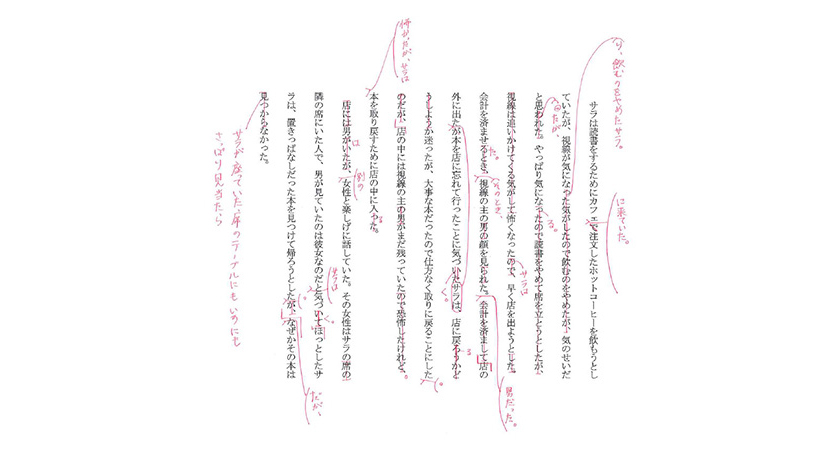 サラは読書をするためにカフェで注文したホットコーヒーを飲もうとし
ていたが、視線が気になった気がしたので飲むのをやめたが、気のせいだ
と思われた。やっぱり気になったので読書をやめて席を立とうとしたが、
視線は追いかけてくる気がして怖くなったので、早く店を出ようとした。
会計を済ませるとき、視線の主の男の顔を見られた。会計を済まして店の
外に出たが本を店に忘れて行ったことに気づいたサラは、店に戻ろうかど
うしようか迷ったが、大事な本だったので仕方なく取りに戻ることにした
のだが、店の中には視線の主の男がまだ残っていたので恐怖したけれど、
本を取り戻すために店の中に入った。
店には男がいたが、女性と楽しげに話していた。その女性はサラの席の
隣の席にいた人で、男が見ていたのは彼女なのだと気づいてほっとしたサ
ラは、置きっぱなしだった本を見つけて帰ろうとしたが、なぜかその本は
見つからなかった。
に来ていた。
サラは
男だった。
そのとき、
別の
は
サラは
だが、
サラが座っていた席のテーブルにもいすにも